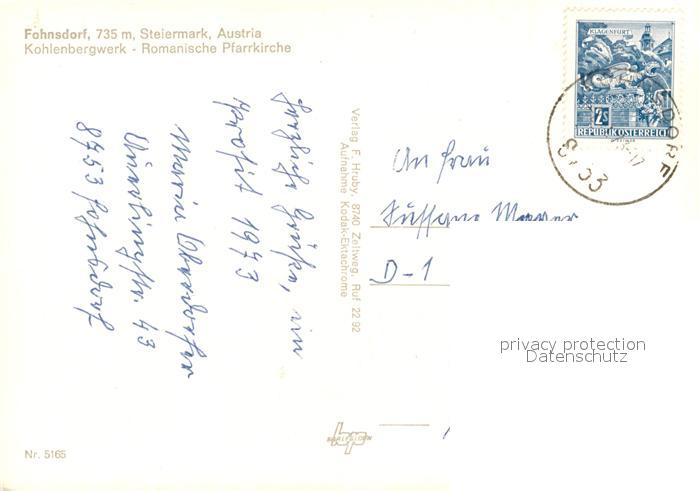 Fohnsdorf, 735 m, Steiermark, Austria
Kohlenbergwerk - Romanische Pfarrkirche
herzliche Grüße, ein
prosit 1973
Maria
43
8753 Fohnsdorf
Verlag F. Hruby, 8740 Zeltweg, Ruf 22 92
Aufnahme Kodak-Ektachrome
KLAGENFURT
2S
REPUBLIK ÖSTERREICH
8753
An Frau
D-1
privacy protection
Datenschutz
Nr. 5165